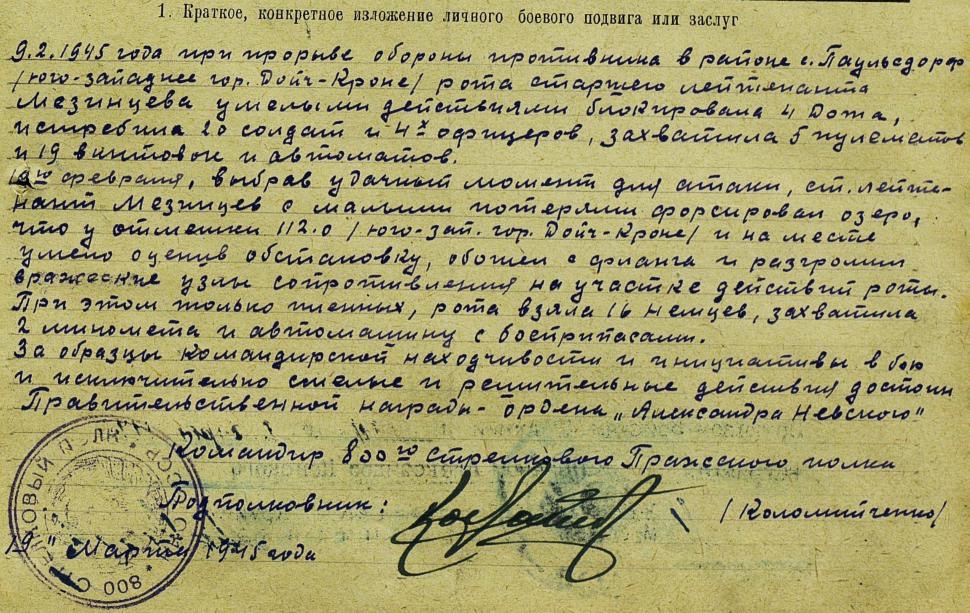 1. Краткое, конкретное изложение личного боевого подвига или заслуг
9.2.1945 года при прорыве обороны противника в районе с. Паульсдорф
/юго-западнее гор. Дойч-Кроне/ рота старшего лейтенанта
Мезинцева умелыми действиями блокировала 4 Дота,
истребила 20 солдат и 4х офицеров, захватила 5 пулеметов
и 19 винтовок и автоматов.
10го февраля, выбрав удачный момент для атаки, ст. лейте-
нант Мезинцев с малыми потерями форсировал озеро,
что у отметки 112.0 /юго-зап. гор. Дойч-Кроне/ и на месте
умело оценив обстановку, обошел с фланга и разгромил
вражеские узлы сопротивления на участке действий роты.
При этом только пленных, рота взяла 16 немцев, захватила
2 миномета и автомашину с боеприпасами.
За образцы командирской находчивости и инициативы в бою
и исключительно смелые и решительные действия достоин
Правительственной награды - ордена „Александра Невского"
Командир 800го стрелкового Пражского полка
Подполковник: /Коломийченко/
19 " Марта 1945 года
800 СТРЕЛКОВЫЙ ПОЛК